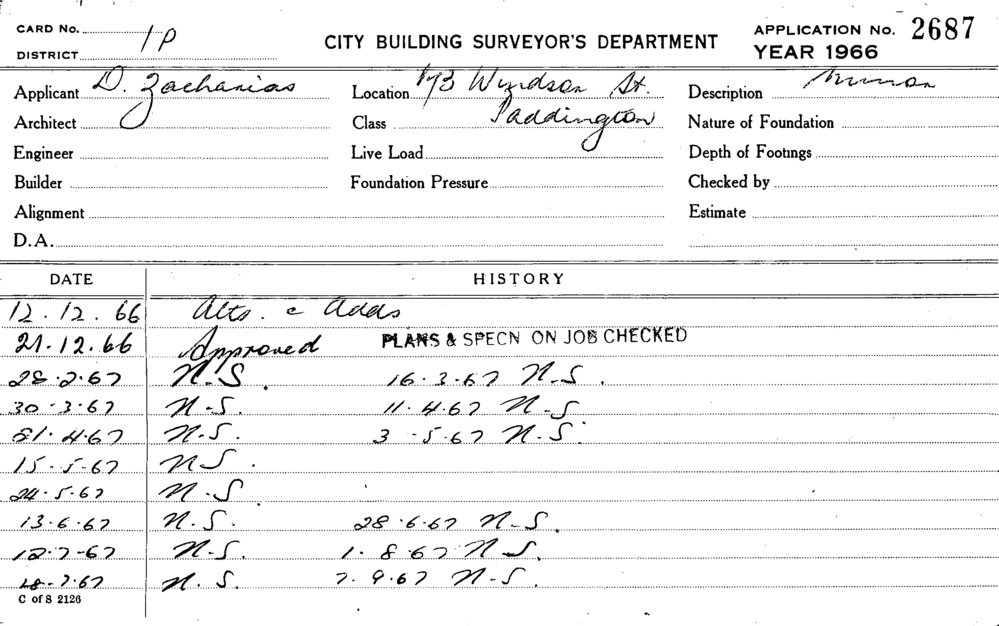 CARD No. 1P
CITY BUILDING SURVEYOR'S DEPARTMENT
APPLICATION No. 2687
DISTRICT
YEAR 1966
Applicant D. Zacharias
Location 173 Windsor St.
Description
Architect
Class Paddington
Nature of Foundation
Engineer
Live Load
Depth of Footings
Builder
Foundation Pressure
Checked by
Alignment
Estimate
D.A.
DATE HISTORY
12.12.66 Alts. & Adds
21.12.66 Approved PLANS & SPECN ON JOB CHECKED
28.2.67 N.S. 16.3.67 N-S.
30.3.67 N-S. 11.4.67 N-S
4.67 N-S. 3.5.67 N.S.
15.5.67 NS.
24.5.67 N.S
13.6.67 N.S. 28.6.67 N-S.
12.7-67 N-S. 1.8.67 N S.
18-7.67 N.S. 7.9.67 N-S.
C of S 2126